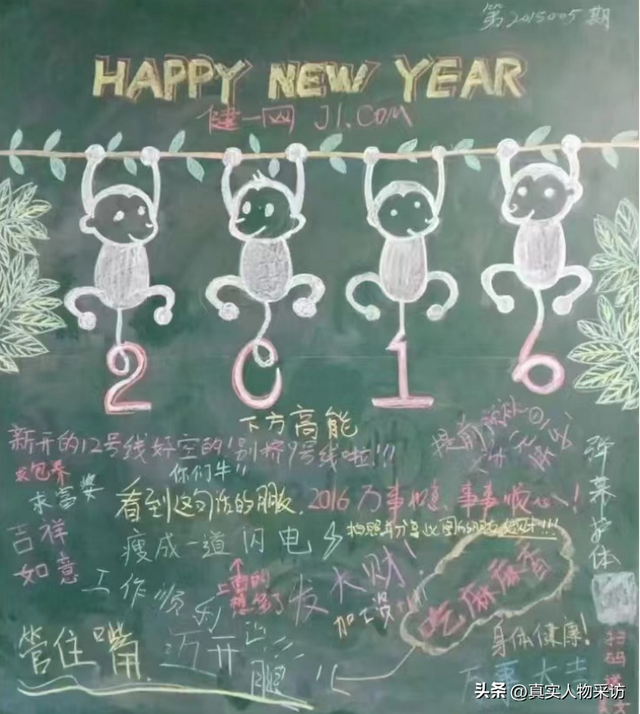 第2015005期
HAPPY NEW YEAR
健一网 J1.COM
2016
下方高能
新开的12号线好空的!别挤9号线啦!!!
求包养
你们牛!!
求富婆
看到这句话的朋友, 2016万事如意、事事顺心!
弹幕护体
吉祥如意
瘦成一道闪电
工作顺利
上面的想多了
发大财!
加工资
吃麻麻香
身体健康!
管住嘴 迈开腿
万事大吉
扫码
头条 @真实人物采访